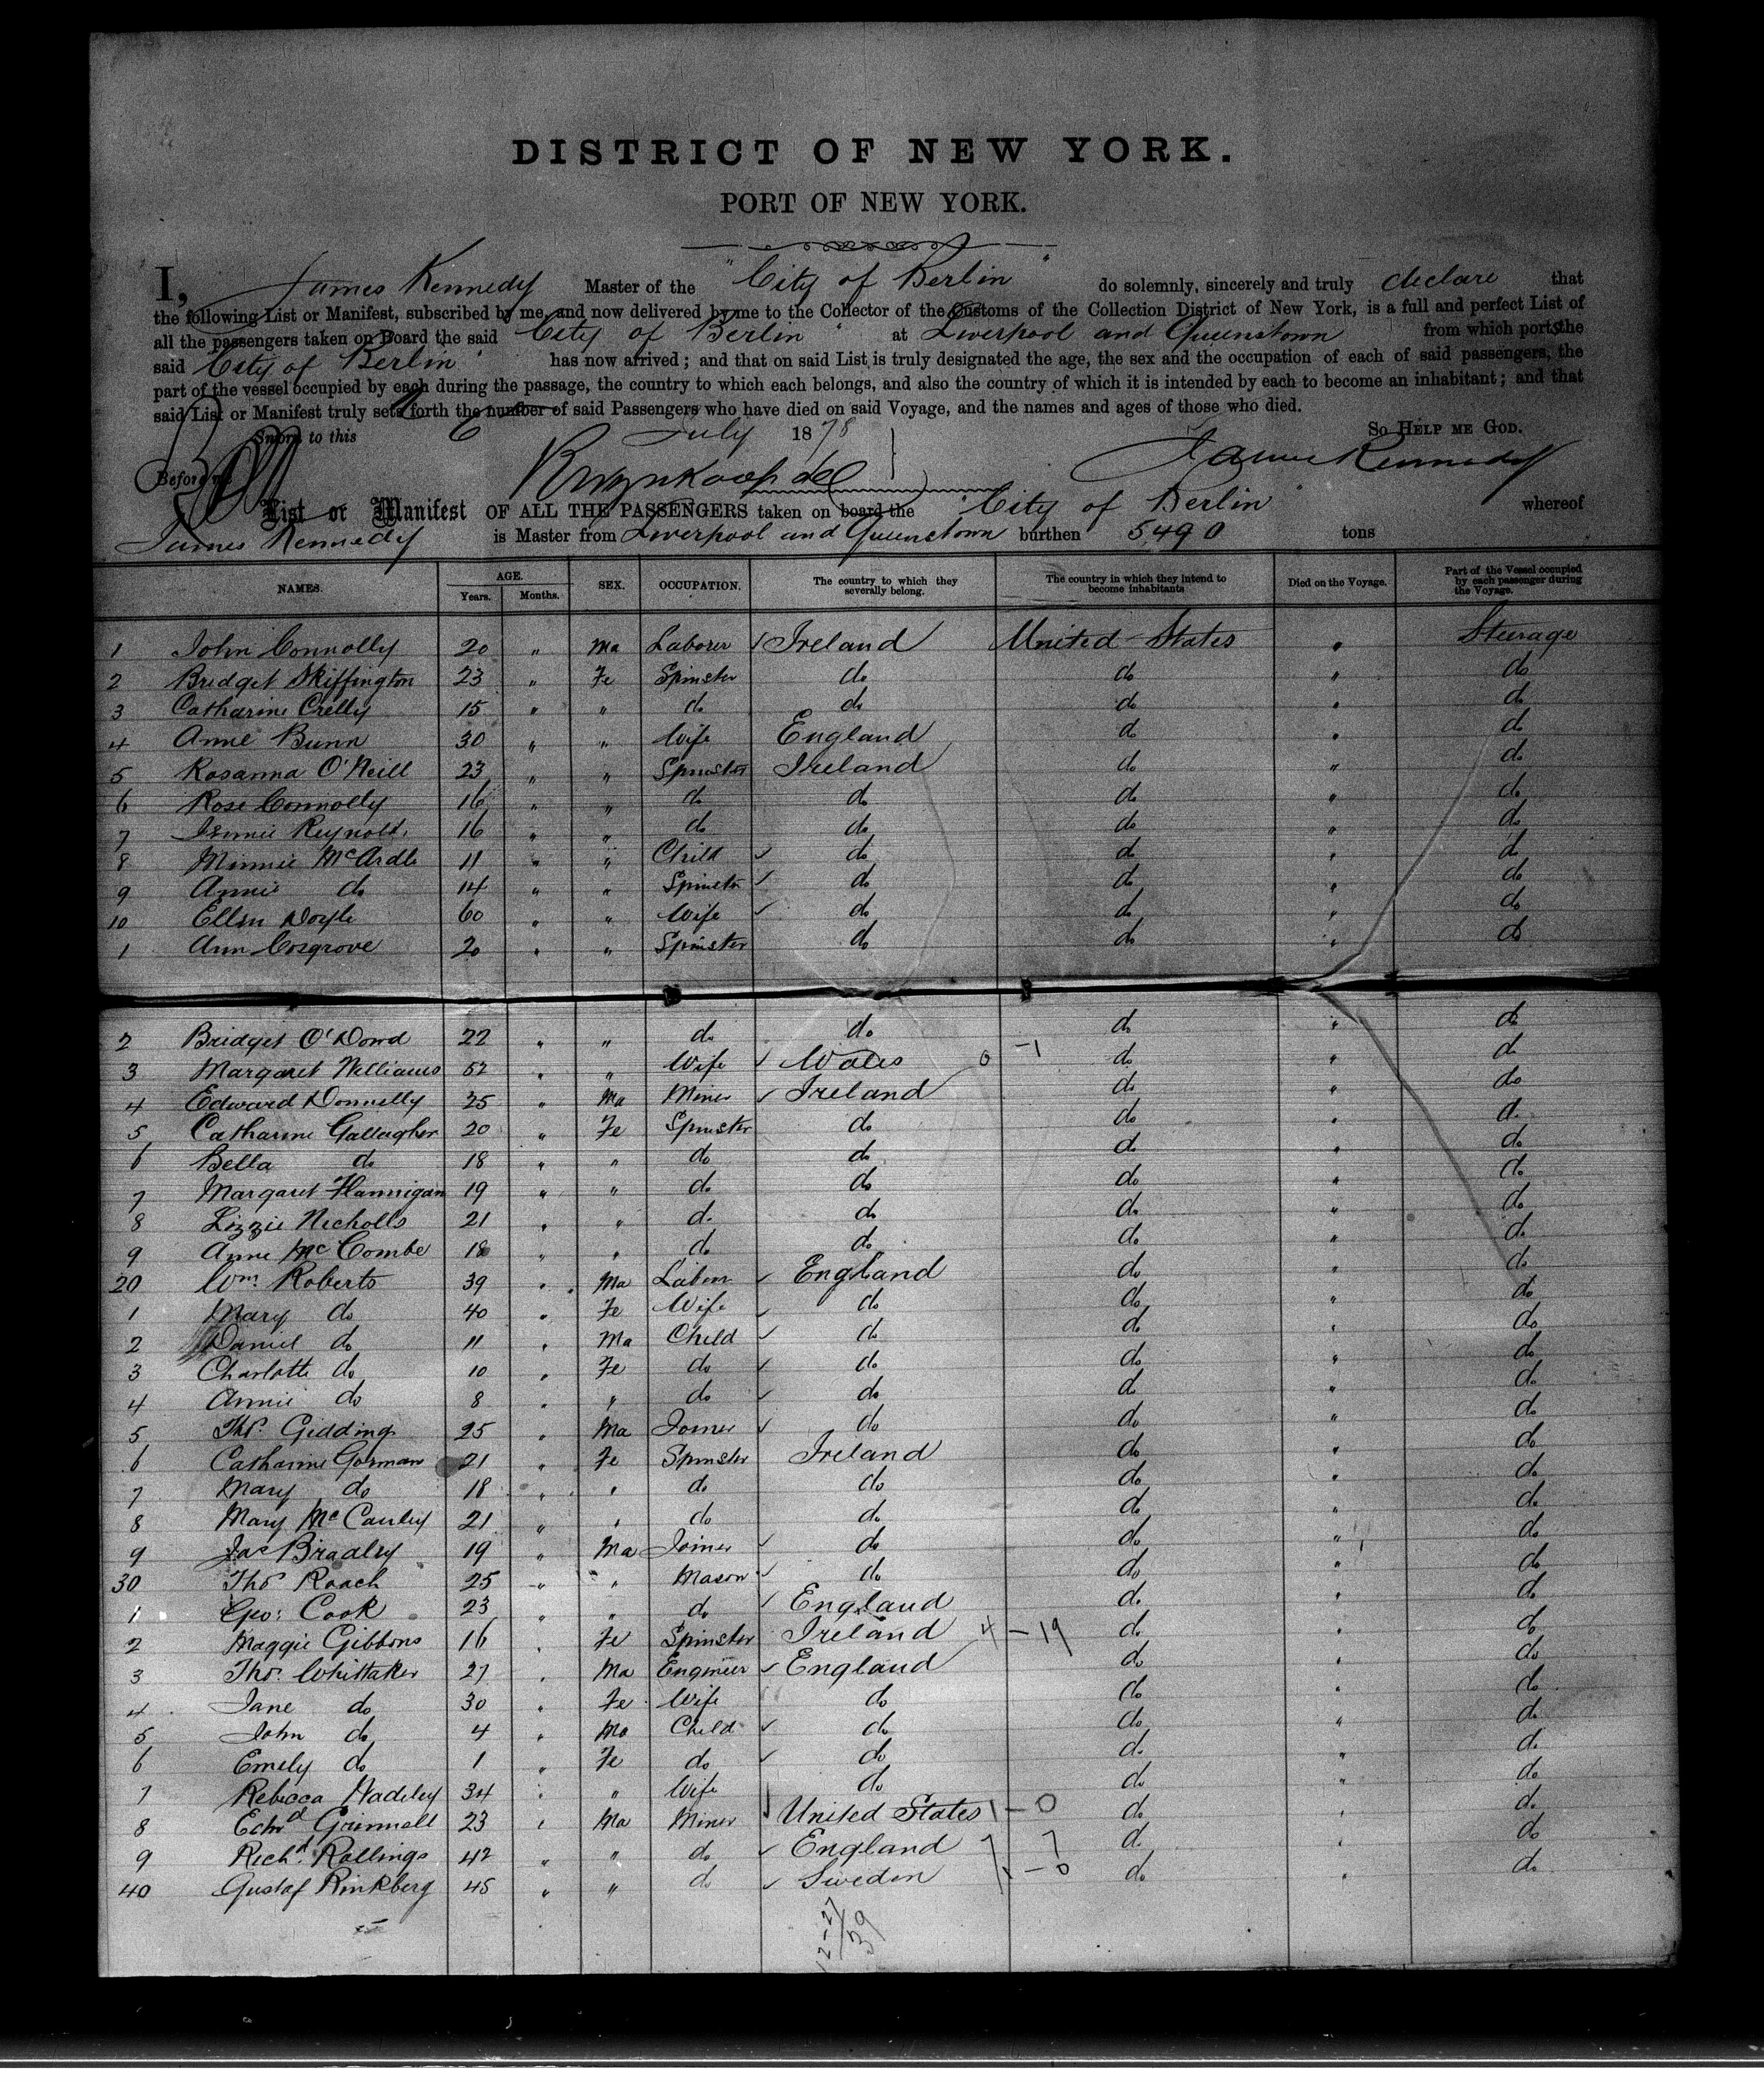 DISTRICT OF NEW YORK.
PORT OF NEW YORK.
I, James Kennedy Master of the "City of Berlin" do solemnly, sincerely and truly declare that
the following List or Manifest, subscribed by me, and now delivered by me to the Collector of the Customs of the Collection District of New York, is a full and perfect List of
all the passengers taken on Board the said City of Berlin" at Liverpool and Queenstown from which ports the
said City of Berlin" has now arrived; and that on said List is truly designated the age, the sex and the occupation of each of said passengers, the
part of the vessel occupied by each during the passage, the country to which each belongs, and also the country of which it is intended by each to become an inhabitant; and that
said List or Manifest truly sets forth the number of said Passengers who have died on said Voyage, and the names and ages of those who died.
Sworn to this 6 July 1878 So Help me God.
Before me James Kennedy
List or Manifest OF ALL THE PASSENGERS taken on board the "City of Berlin" whereof
James Kennedy is Master from Liverpool and Queenstown burthen 5490 tons
NAMES. AGE. Years. Months. SEX. OCCUPATION. The country to which they severally belong. The country in which they intend to become inhabitants Died on the Voyage. Part of the Vessel occupied by each passenger during the Voyage.
1 John Connolly 20 " Ma Laborer Ireland United States " Steerage
2 Bridget Skiffington 23 " Fe Spinster do do " do
3 Catharine Crelly 15 " " do do do " do
4 Anne Bunn 30 " " Wife England do " do
5 Rosanna O'Neill 23 " " Spinster Ireland do " do
6 Rose Connolly 16 " " do do do " do
7 Reynolds 16 " " do do do " do
8 Minnie McArdle 11 " " Child do do " do
9 Annie do 14 " " Spinster do do " do
10 Ellen Doyle 60 " " Wife do do " do
1 Ann Cosgrove 20 " " Spinster do do " do
2 Bridget O'Dowd 22 " " do do do " do
3 Margaret Williams 52 " " Wife Wales 0 - 1 do " do
4 Edward Donnelly 25 " Ma Miner Ireland do " do
5 Catharine Gallagher 20 " Fe Spinster do do " do
6 Bella do 18 " " do do do " do
7 Margaret Flannigan 19 " " do do do " do
8 Lizzie Nicholls 21 " " do do do " do
9 Anne McCombe 18 " " do do do " do
20 Wm. Roberts 39 " Ma Labor England do " do
1 Mary do 40 " Fe Wife do do " do
2 Daniel do 11 " Ma Child do do " do
3 Charlotte do 10 " Fe do do do " do
4 Annie do 8 " " do do do " do
5 Thos. Giddings 25 " Ma Joiner do do " do
6 Catharine Gorman 21 " Fe Spinster Ireland do " do
7 Mary do 18 " " do do do " do
8 Mary McCauley 21 " " do do do " do
9 Jas Bradley 19 " Ma Joiner do do " do
30 Thos Roach 25 " " Mason do do " do
1 Geo: Cook 23 " " do England do " do
2 Maggie Gibbons 16 " Fe Spinster Ireland 4 - 19 do " do
3 Thos. Whittaker 27 " Ma Engineer England do " do
4 Jane do 30 " Fe Wife do do " do
5 John do 4 " Ma Child do do " do
6 Emely do 1 " Fe do do do " do
7 Rebecca Hadeley 34 " " Wife do do " do
8 Edwd Grinnell 23 " Ma Miner United States 1 - 0 do " do
9 Richd. Rollings 42 " " do England 7 7 do " do
40 Gustaf Rinkberg 45 " " do Sweden 1 - 0 do " do
12-27/39